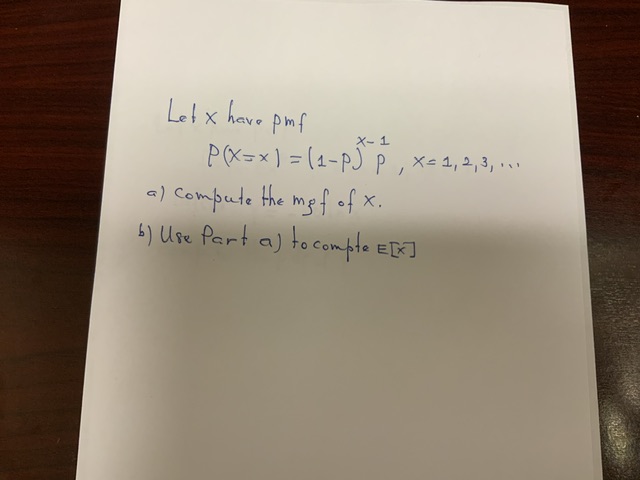 Let x have pmf
P(X=x) = (1-P)^{x-1} P , x= 1, 2, 3, ...
a) compute the mgf of x.
b) Use Part a) to compte E[X]